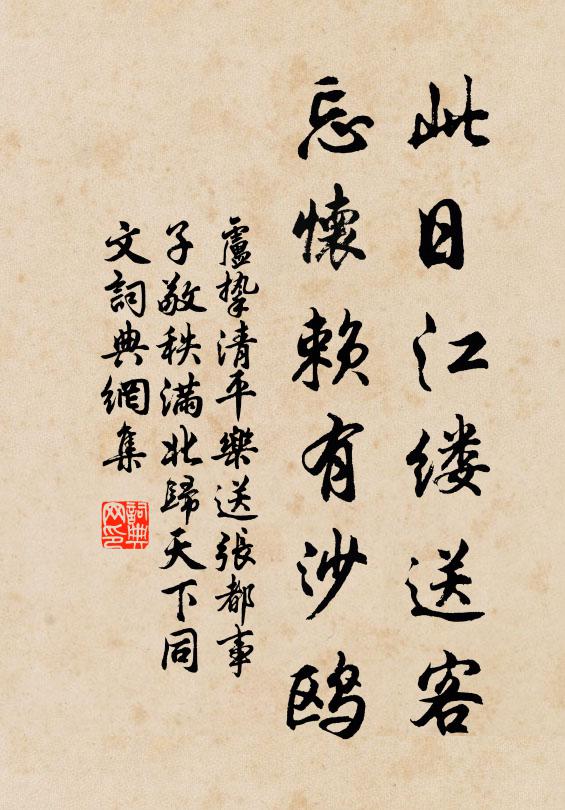 此日江缕送客
忘懷赖有沙鸥
盧挚清平樂送張都事
子敬秩滿北歸天下同
文詞典網集
詞典
网印